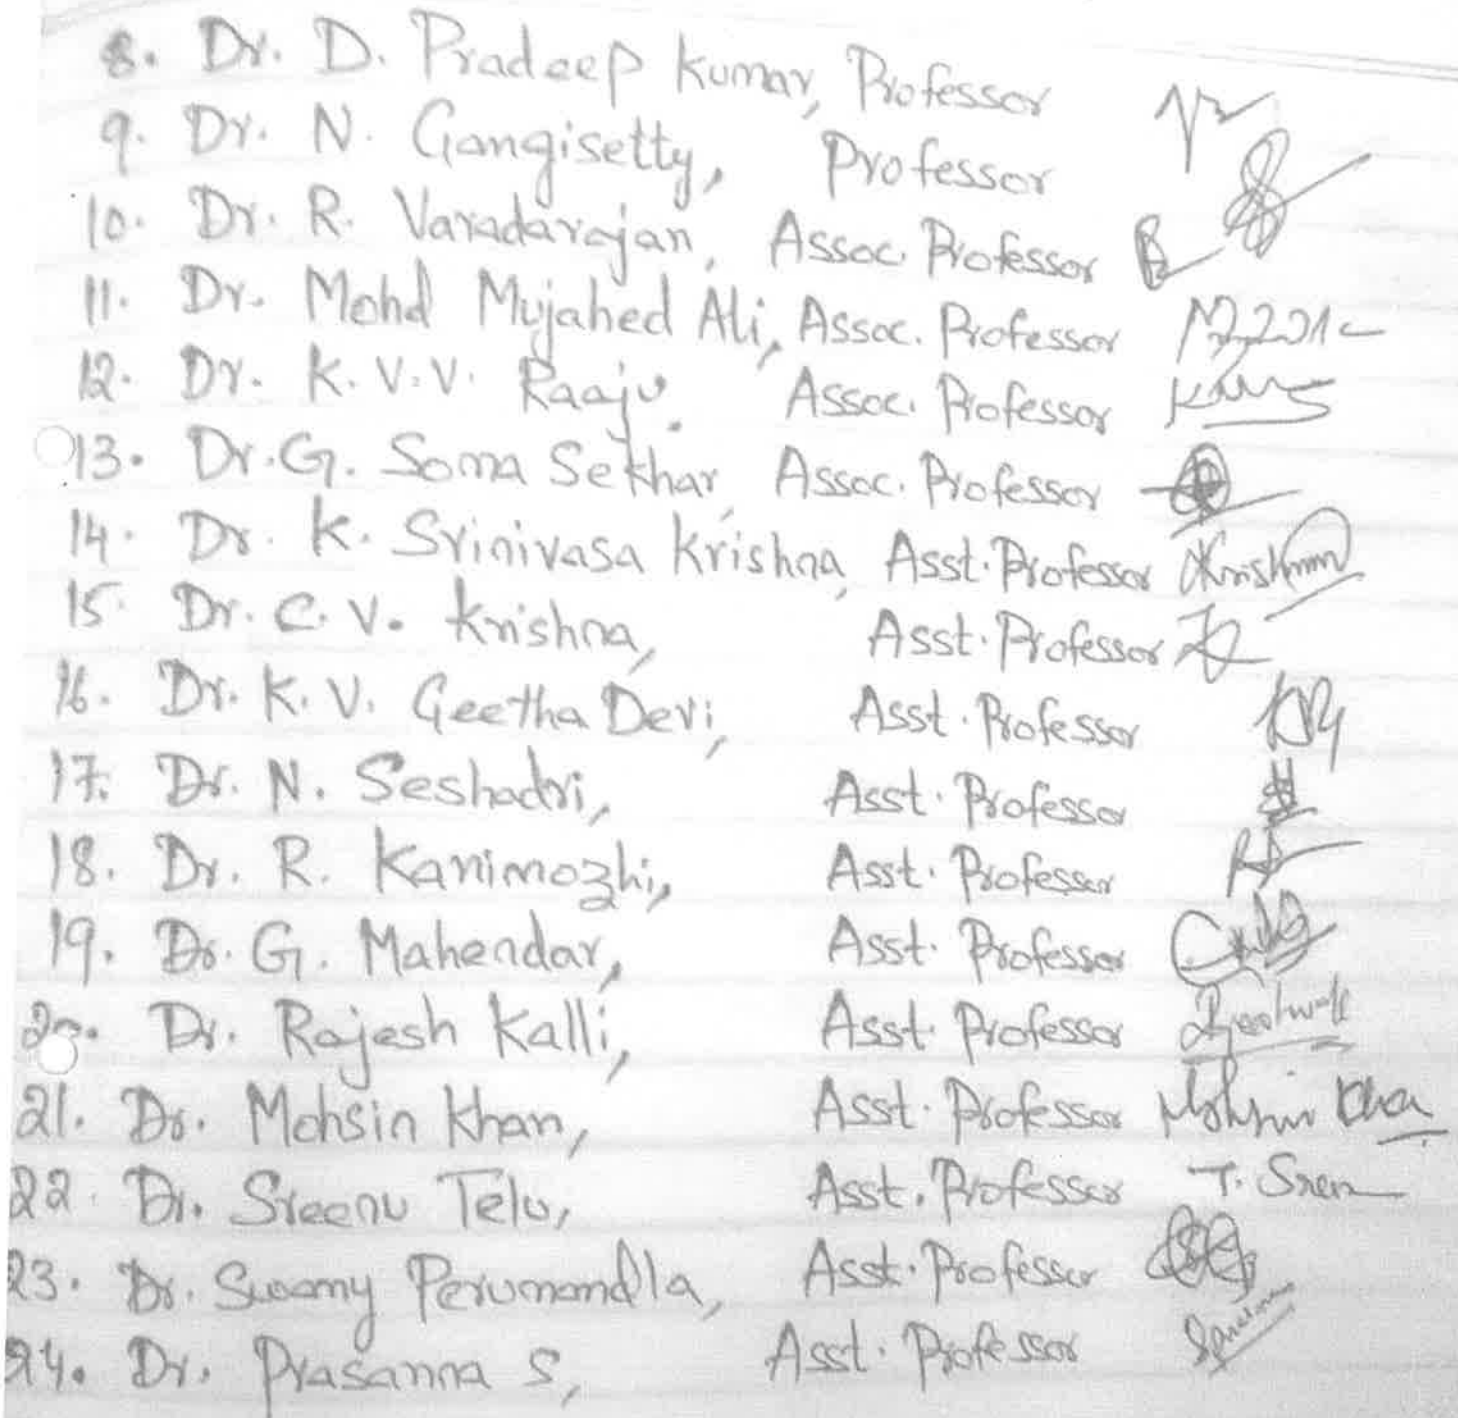 8. Dr. D. Pradeep Kumar, Professor
9. Dr. N. Gangisetty, Professor
10. Dr. R. Varadarajan, Assoc. Professor
11. Dr. Mohd Mujahed Ali, Assoc. Professor
12. Dr. K. V. V. Raaju. Assoc. Professor
13. Dr. G. Soma Sekhar, Assoc. Professor
14. Dr. K. Srinivasa Krishna, Asst. Professor Krishna
15. Dr. C. V. Krishna, Asst. Professor
16. Dr. K. V. Geetha Devi, Asst. Professor
17. Dr. N. Seshadri, Asst. Professor
18. Dr. R. Kanimozhi, Asst. Professor
19. Dr. G. Mahendar, Asst. Professor
20. Dr. Rajesh Kalli, Asst. Professor
21. Dr. Mohsin Khan, Asst. Professor Mohsin Khan
22. Dr. Sreenu Telu, Asst. Professor T. Sreen
23. Dr. Swamy Perumandla, Asst. Professor
24. Dr. Prasanna S, Asst. Professor